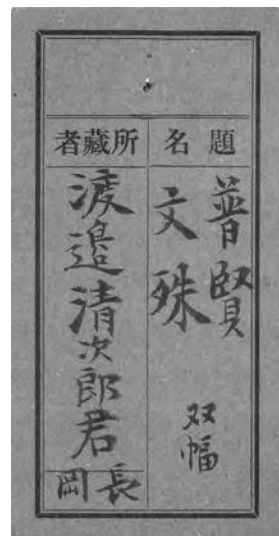 題名
普賢
文殊
双幅
所藏者
渡邉清次郎君
長岡